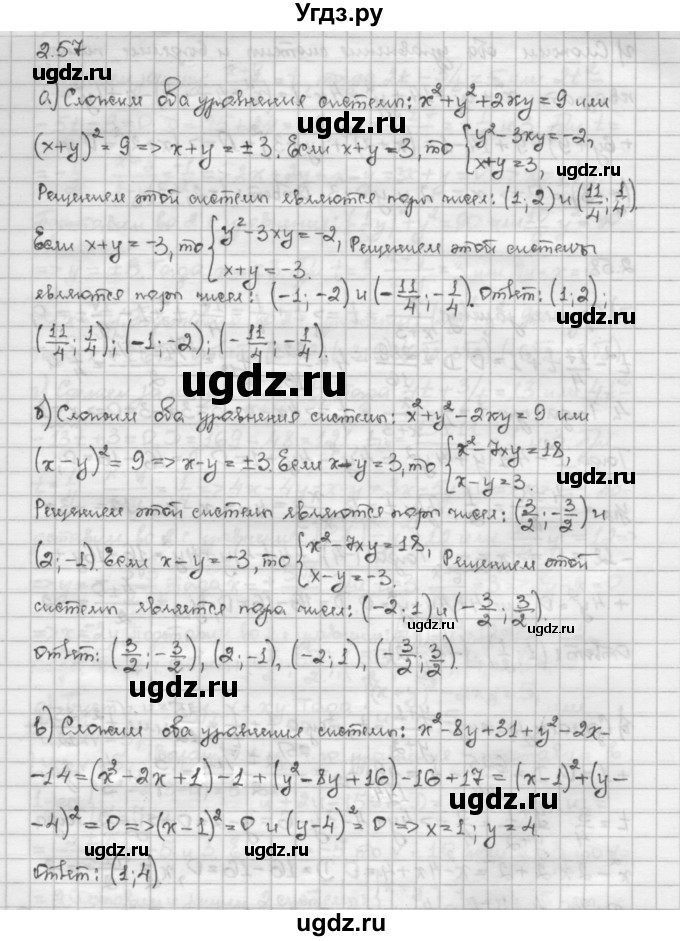 Угдз.ру
2.57
а) Сложим оба уравнения системы: x²+y²+2xy=9 или
(x+y)²=9 => x+y=±3. Если x+y=3, то { y²-3xy=-2, x+y=3,
Решением этой системы являются пары чисел: (1;2) и (11/4; 1/4).
Если x+y=-3, то { y²-3xy=-2, x+y=-3. Решением этой системы
являются пары чисел: (-1;-2) и (-11/4; -1/4). Ответ: (1;2);
(11/4; 1/4); (-1;-2); (-11/4; -1/4).
ugdz.ru
б) Сложим оба уравнения системы: x²+y²-2xy=9 или
(x-y)²=9 => x-y=±3. Если x-y=3, то { x²-7xy=18, x-y=3.
ugdz.ru
Решением этой системы являются пары чисел: (3/2; -3/2) и
(2;-1). Если x-y=-3, то { x²-7xy=18, x-y=-3. Решением этой
ugdz.ru
системы является пара чисел: (-2;1) и (-3/2; 3/2).
ugdz.ru ugdz.ru
Ответ: (3/2; -3/2), (2;-1), (-2;1), (-3/2; 3/2).
ugdz.ru
в) Сложим оба уравнения системы: x²-8y+31+y²-2x-
-14=(x²-2x+1)-1+(y²-8y+16)-16+17=(x-1)²+(y-
ugdz.ru
-4)²=0 => (x-1)²=0 и (y-4)²=0 => x=1; y=4
ugdz.ru ugdz.ru
Ответ: (1;4).
ugdz.ru ugdz.ru